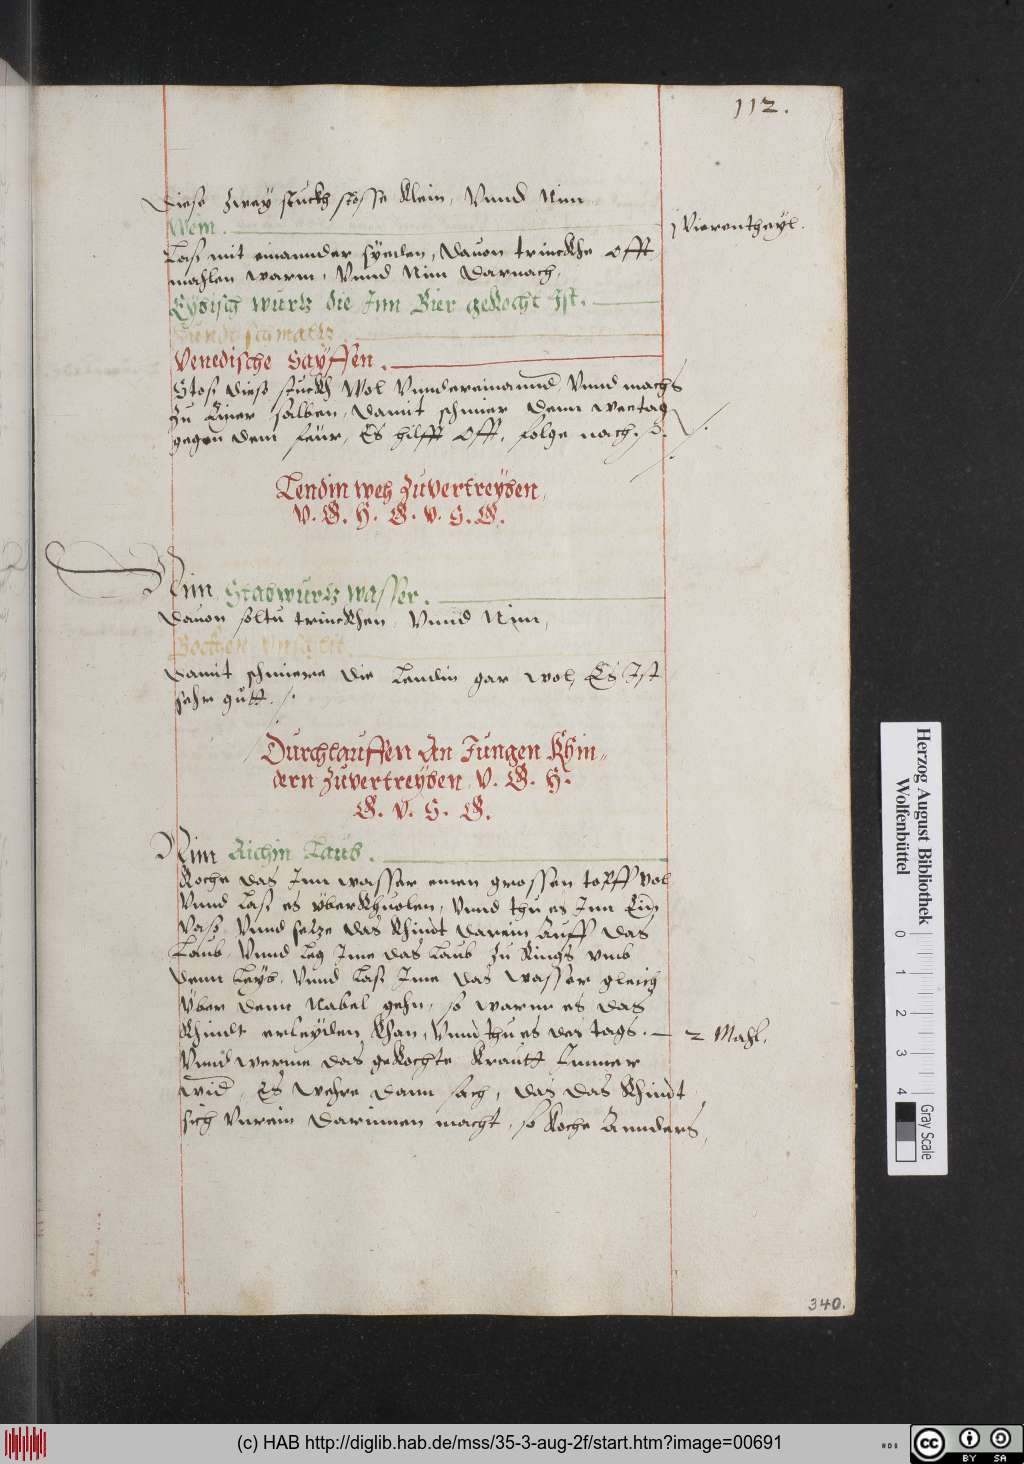 112.
Diese Zwey stuckh stosse Klein, Vnnd Nim
Wein. j Vierentheyl.
Lass mit einannder syeden, dauon trinckhe Offt
mahlen warm, Vnnd Nim Darnach,
Eybisch wurtz die Inn Bier gekocht Ist.
Hundt schmaltz
Venedische Sayffen.
Stoss diese stuckh Wol Vnndereinannd Vnnd machs
Zu Einer salben, Damit schmier Denn weetag
gegen dem feür, Es hilfft Offt, folge nach.
Lendin weh Zuvertreyben,
V. G. H. G. V. S. G.
Nim Stabwurtz wasser.
Dauon soltu trinckhen, Vnnd Nim,
Bockhen Vnschlit.
Damit schmiere die Lendin gar wol, Es Ist
sehr gutt.
Durchlauffen An Jungen Khin=
dern Zuvertreyben. V. G. H.
G. V. S. G.
Nim Aichin Laub.
Koche das Inn wasser einen grossen topff vol
Vnnd Lass es überkhuolen, Vnnd thu es Inn Ein
Vass, Vnnd setze das Khindt darein Auff das
Laub, Vnnd Leg Ime das Laub Zu Rings vmb
denn Leyb, Vnnd Lass Ime das wasser gleich
Über denn Nabel gehn, so warm es das
Khindt erleyden Khan, Vnnd thu es des tags. 2 Mahl.
Vnnd werme das gekochte Krautt Immer
wid, Es wehre dann sach, das das Khindt
sich Vnrein darinnen macht, so Koche Annders,
340.
Herzog August Bibliothek
Wolfenbüttel
0 1 2 3 4
Gray Scale
(c) HAB http://diglib.hab.de/mss/35-3-aug-2f/start.htm?image=00691
cc BY SA